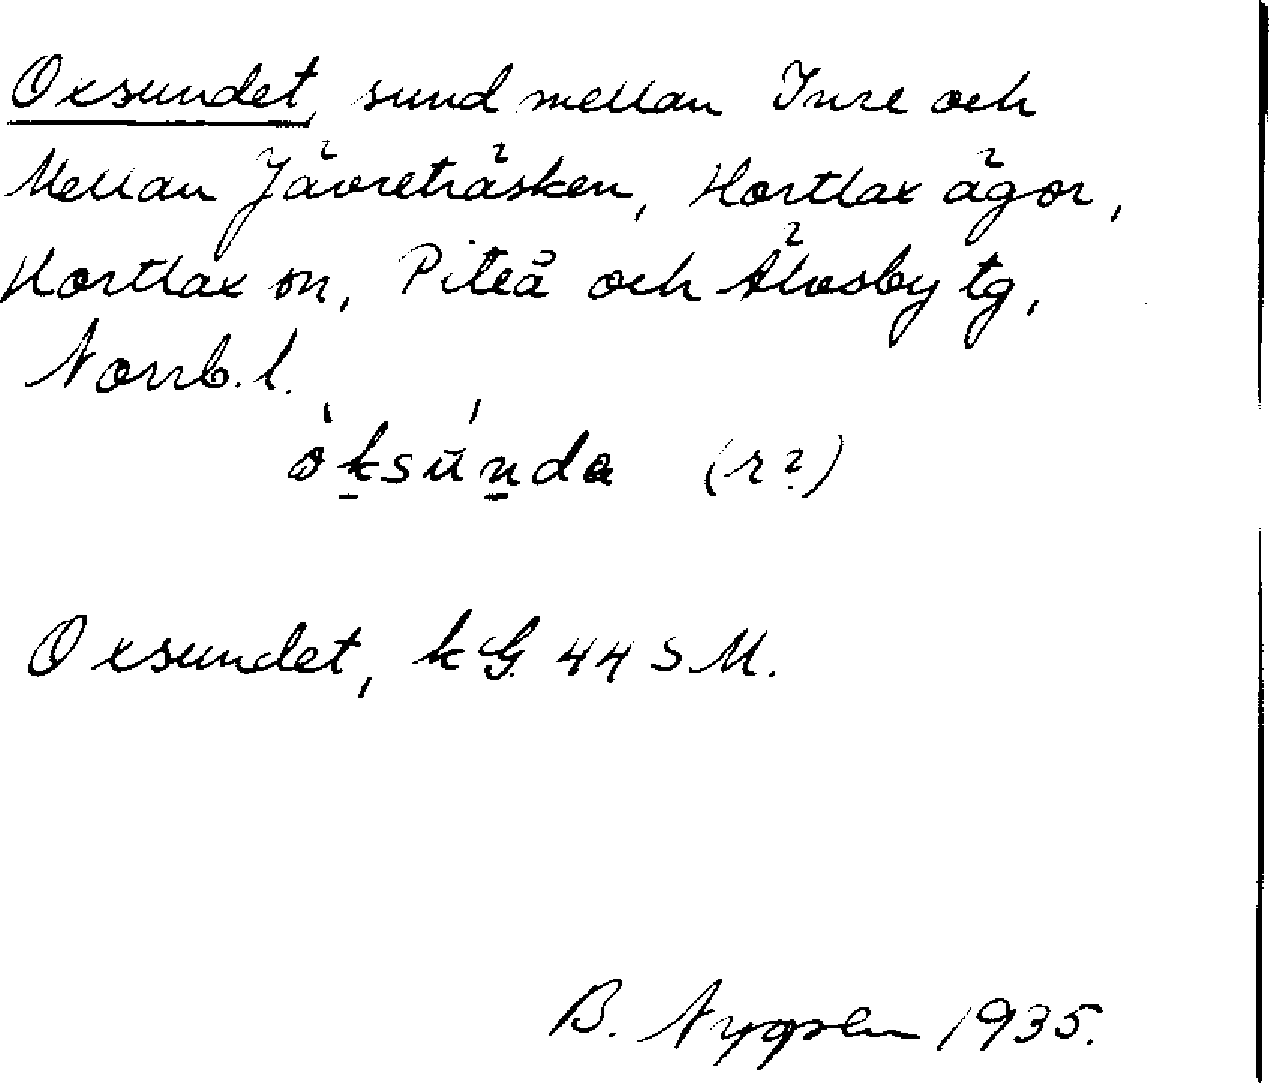 Oxsundet, sund mellan Inre och
Mellan Jävreträsken, Hortlax ägor,
Hortlax sn, Piteå och Älvsby tg,
Norrb. l.
òksúnda (r?)
Oxsundet, kG 44 SM.
B. Nygren 1935.